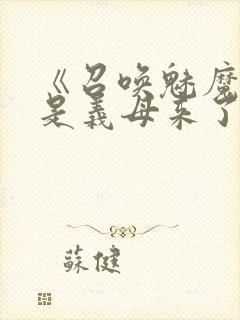 《召喚魅魔
是義母来了
蘇健